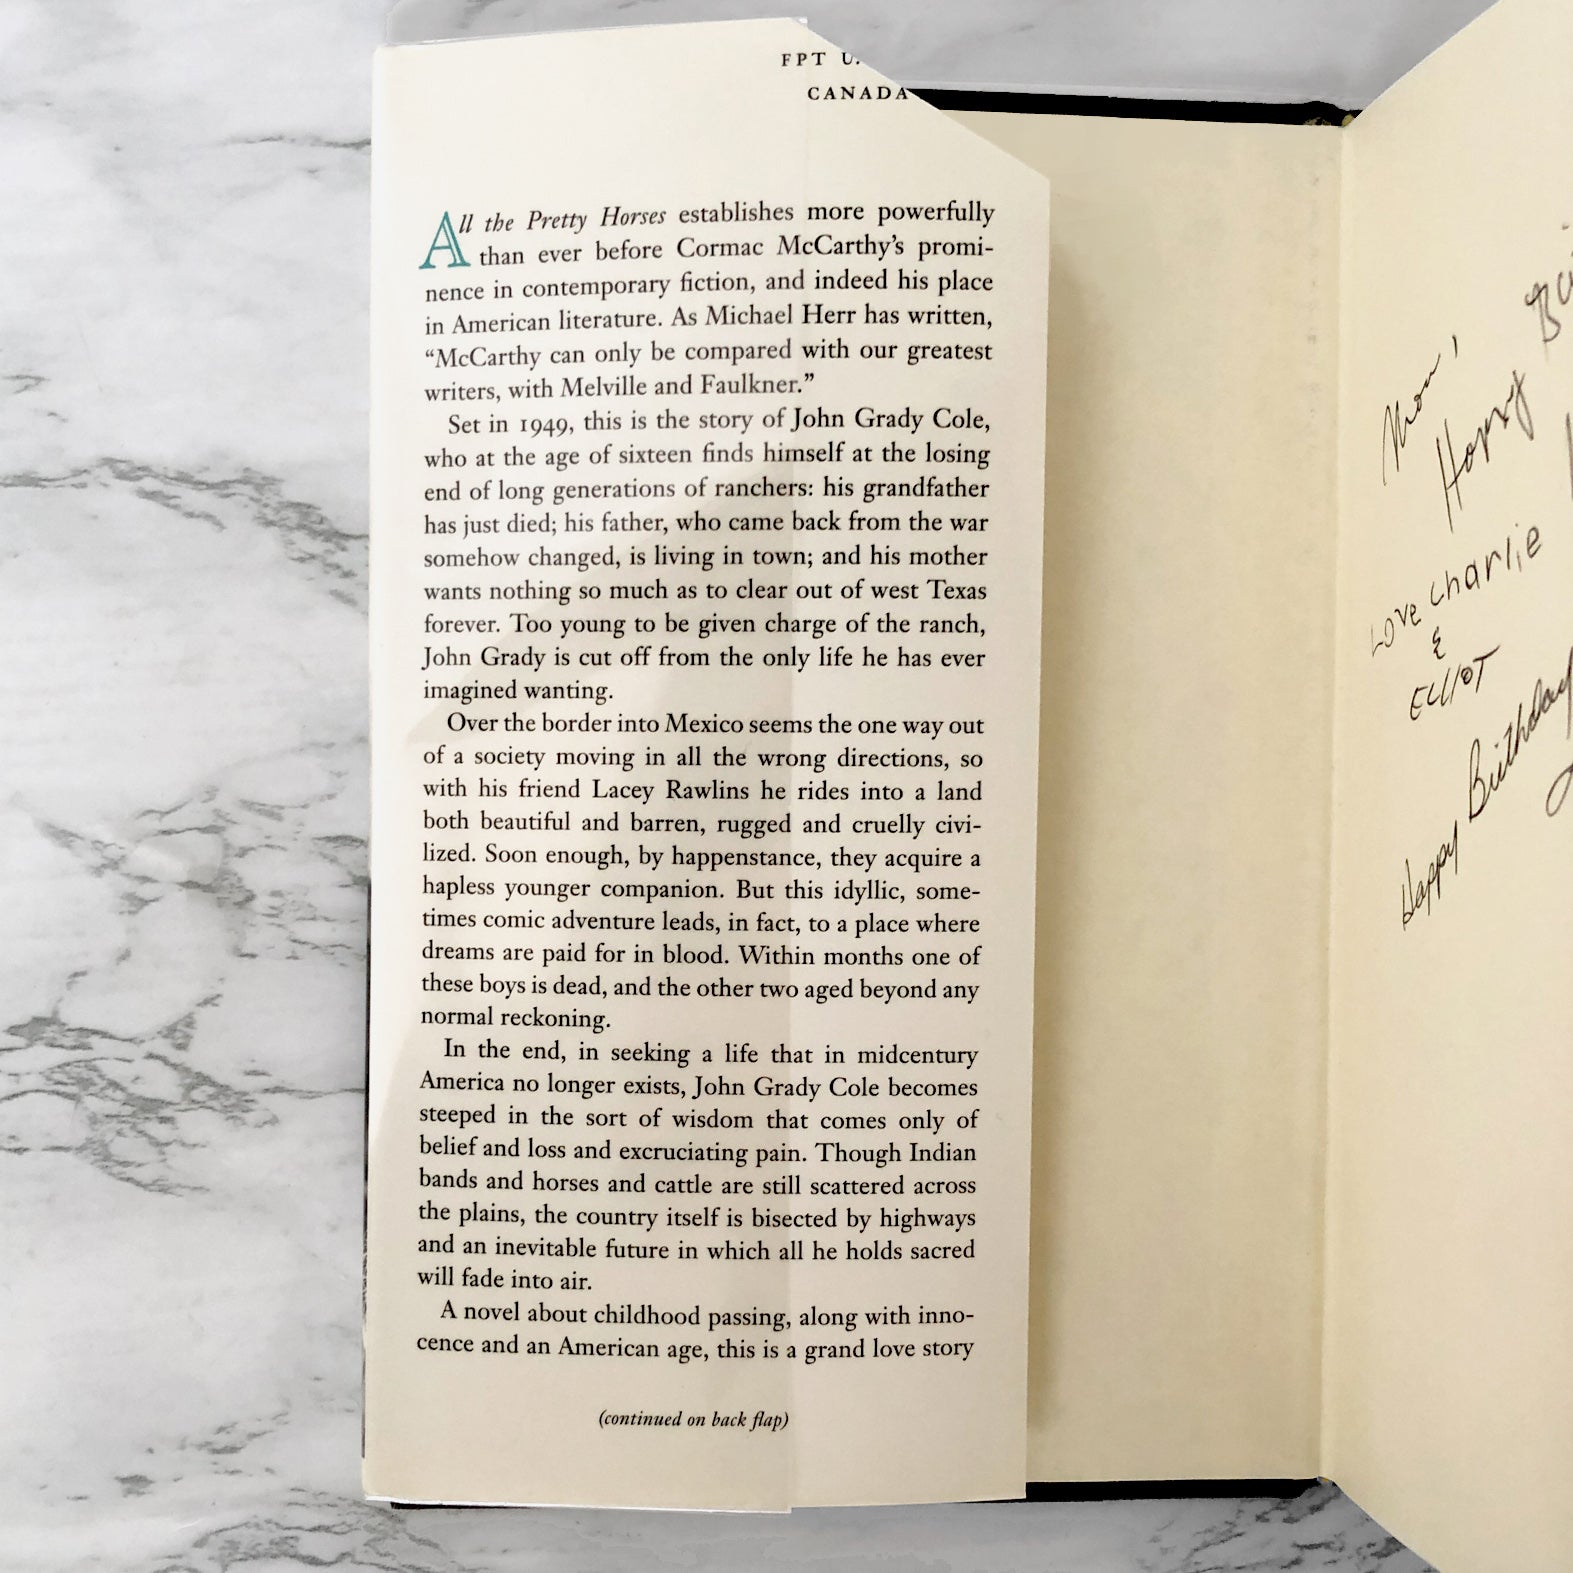 FPT U.
CANADA
All the Pretty Horses establishes more powerfully
than ever before Cormac McCarthy's promi-
nence in contemporary fiction, and indeed his place
in American literature. As Michael Herr has written,
“McCarthy can only be compared with our greatest
writers, with Melville and Faulkner.”
Set in 1949, this is the story of John Grady Cole,
who at the age of sixteen finds himself at the losing
end of long generations of ranchers: his grandfather
has just died; his father, who came back from the war
somehow changed, is living in town; and his mother
wants nothing so much as to clear out of west Texas
forever. Too young to be given charge of the ranch,
John Grady is cut off from the only life he has ever
imagined wanting.
Over the border into Mexico seems the one way out
of a society moving in all the wrong directions, so
with his friend Lacey Rawlins he rides into a land
both beautiful and barren, rugged and cruelly civi-
lized. Soon enough, by happenstance, they acquire a
hapless younger companion. But this idyllic, some-
times comic adventure leads, in fact, to a place where
dreams are paid for in blood. Within months one of
these boys is dead, and the other two aged beyond any
normal reckoning.
In the end, in seeking a life that in midcentury
America no longer exists, John Grady Cole becomes
steeped in the sort of wisdom that comes only of
belief and loss and excruciating pain. Though Indian
bands and horses and cattle are still scattered across
the plains, the country itself is bisected by highways
and an inevitable future in which all he holds sacred
will fade into air.
A novel about childhood passing, along with inno-
cence and an American age, this is a grand love story
(continued on back flap)
Mom'
Happy
Love Charlie
&
ELLIOT
Happy Birthday